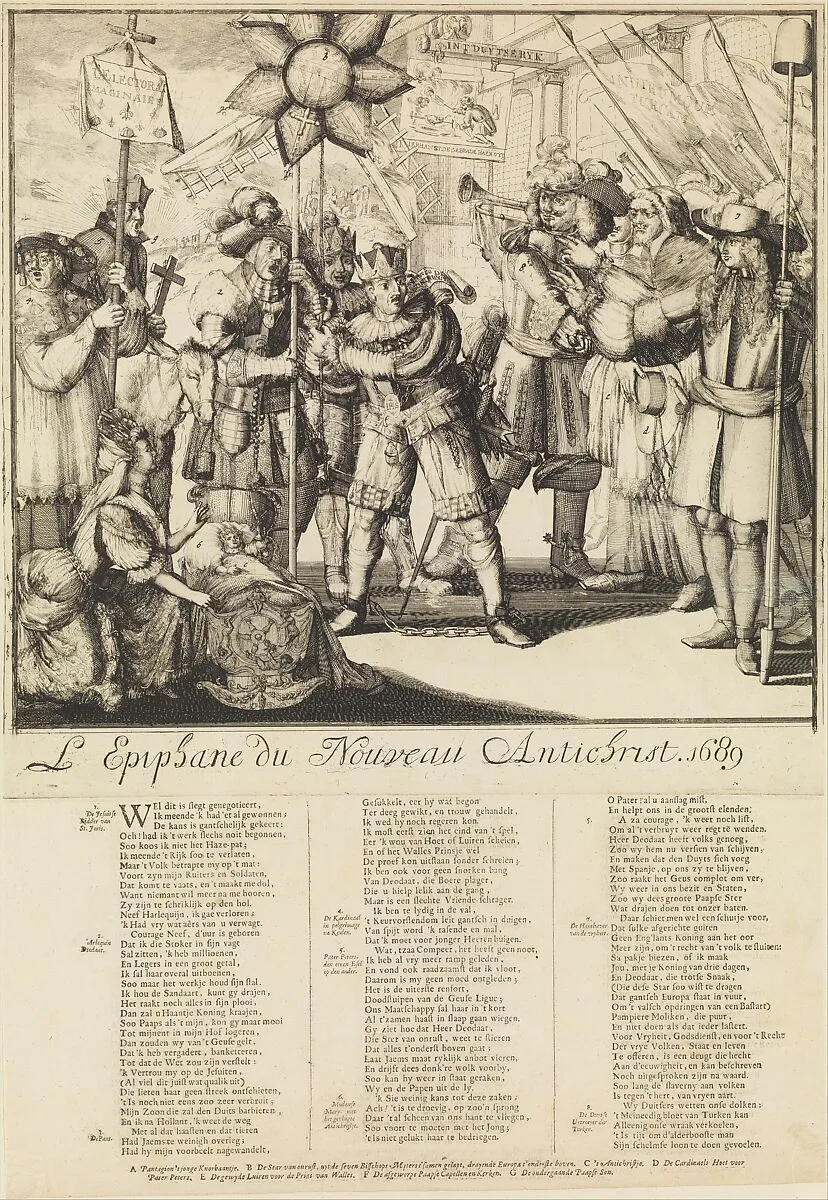 DELECTORA
IMAGINAIR
IN'T DUYTSE RYK
L Epiphane du Nouveau Antichrist. 1689
1.
De Jesuitse
Ridder van
St. Joris.
WEl dit is slegt genegotieert,
Ik meende 'k had 'et al gewonnen;
De kans is gantschelijk gekeert:
Och! had ik 't werk slechs noit begonnen,
Soo koos ik niet het Haze-pat;
Ik meende 't Rijk soo te verlaten,
Maar 't Volk betrapte my op 't mat:
Voort zyn mijn Ruiters en Soldaten,
Dat komt te vaats, en 't maakt me dol,
Want niemant wil meer na me hooren,
Zy zijn te schriklijk op den hol.
Neef Harlequijn, ik gae verloren;
'k Had vry wat aêrs van u verwagt.
2.
Arlequin
Deodaat.
Courage Neef, d'uur is geboren
Dat ik die Stoker in sijn vagt
Sal zitten, 'k heb millioenen,
En Legers in een groot getal
Ik sal haar overal uitboenen,
Soo maar het werkje houd sijn stal.
Ik hou de Sandaart, kunt gy drajen,
Het raakt noch alles in sijn plooi,
Dan zal u Haantje Koning kraajen,
Soo Paaps als 't mijn, kon gy maar mooi
Tot mijnent in mijn Hof logeren,
Dan zouden wy van 't Geuse gelt,
Dat 'k heb vergadert, banketteren,
Tot dat de Wet zou zijn verstelt:
'k Vertrou my op de Jesuiten,
(Al viel dit juist wat qualik uit)
Die lieten haar geen streek ontschieten,
't Is noch niet eens zoo zeer verbruit;
Mijn Zoon die zal den Duits barbieren,
En ik na Hollant, 'k weet de weg
3.
De Pant.
Met al dat haasten en dat tieren
Had Jaems te weinigh overleg;
Had hy mijn voorbeelt nagewandelt,
Gesukkelt, eer hy wat begon
Ter deeg gewikt, en trouw gehandelt,
Ik wed hy noch regeren kon.
Ik most eerst zien het eind van 't spel,
Eer 'k wou van Hoet of Luiren scheien,
En of het Walles Prinsje wel
De proef kon uitstaan sonder schreien;
Ik ben ook voor geen snorken bang
Van Deodaat, die Boere plager,
Die u hielp lelik aan de gang,
Maar is een slechte Vriende-schrager.
4.
De Kardinaal
in pelgrimage
na Keulen.
Ik ben te lydig in de val,
't Keurvorstlendom leit gantsch in duigen,
Van spijt word 'k rasende en mal,
Dat 'k moet voor jonger Heeren buigen.
5.
Pater Peters,
den eenen Esel
op den ander.
Wat, tzaa Compeer, het heeft geen noot,
Ik heb al vry meer ramp geleden,
En vond ook raadzaamst dat ik vloot,
Daarom is my geen moed ontgleden;
Het is de uiterste renfort,
Doodsluipen van de Geuse Ligue;
Ons Maatschappy sal haar in 't kort
Al t'zamen haast in slaap gaan wiegen.
Gy ziet hoe dat Heer Deodaat,
Die Ster van onrust, weet te stieren
Dat alles t'onderst boven gaat:
Laat Jaems maar ryklijk anbot vieren,
En drijft dees donk're wolk voorby,
Soo kan hy weer in staat geraken,
Wy en de Papen uit de ly.
6.
Madame
Mary met
het geslagte
Antichristje.
'k Sie weinig kans tot deze zaken;
Ach! 't is te droevig, op zoo'n sprong
Daar 't al scheen van ons hant te vliegen,
Soo voort te moeten met het Jong;
't is niet gelukt haar te bedriegen.
O Pater! al u aanslag mist,
En helpt ons in de grootst elenden;
5.
A za courage, 'k weet noch list,
Om al 't verbruyt weer regt te wenden.
Heer Deodaat heeft volks genoeg,
Zoo wy hem nu versien van schijven,
En maken dat den Duyts sich voeg
Met Spanje, op ons zy te blijven,
Zoo raakt het Geus complot om ver,
Wy weer in ons bezit en Staten,
Zoo wy dees groote Paapse Ster
Wat drajen doen tot onzer baten.
7.
De Hansbever
van de vryheit.
Daar schiet men wel een schuije voor,
Dat sulke afgerichte guiten
Geen Eng'lants Koning aan het oor
Meer zijn, om 't recht van 't volk te sluiten:
Sa pakje biezen, of ik maak
Jou, met je Koning van drie dagen,
En Deodaat, die trotse Snaak,
(Die dese Star soo wist te dragen
Dat gantsch Europa staat in vuur,
Om 't valsch opdringen van een Bastart)
Pampiere Moliken, die puur,
En niet doen als dat ieder lastert.
Voor Vryheit, Godsdienst, en voor 't Recht
Der vrye Volken, Staat en leven
Te offeren, is een deugt die hecht
Aan d'eeuwigheit, en kan beschreven
Noch uitgesproken zijn na waard.
Soo lang de slaverny aan volken
Is tegen 't hert, van vryen aart.
De Duitse
Uitroeyer der
Turken.
Wy Duitsers wetten onse dolken:
't Meineedig bloet van Turken kan
Alleenig onse wraak verkoelen,
't Is tijt om d'alderbooste man
Sijn schelmse loon te doen gevoelen.
A Pantagion 'tjonge Knorbaantje. B De Star van onrust, uyt de seven Bisschops Myters t'samen gelapt, drayende Europa t'onderste boven. C 't Antichristje. D De Cardinaels Hoet voor
Pater Peters. E De gewyde Luiren voor de Prins van Walles. F De afgeworpe Paapse Capellen en Kerken. G De ondergaande Paapse Son.